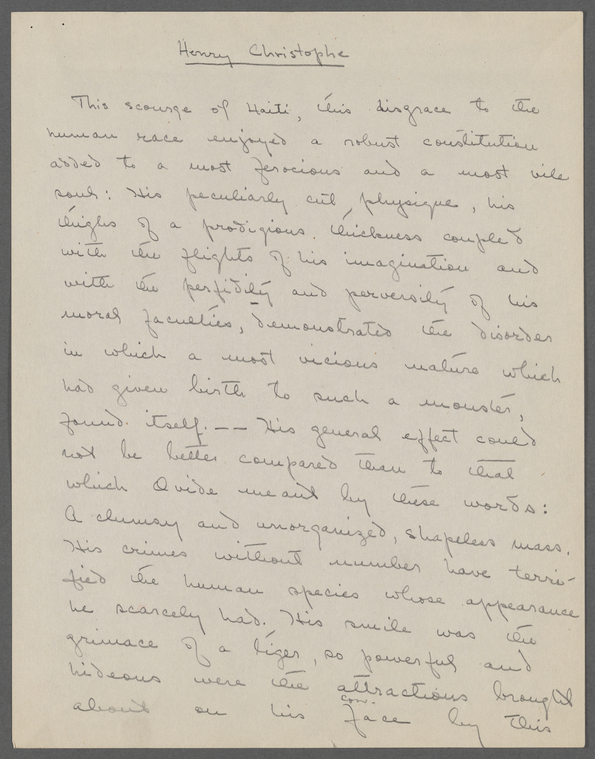 Henry Christophe
This scourge of Haiti, this disgrace to the
human race enjoyed a robust constitution
added to a most ferocious and a most vile
soul: His peculiarly cut physique, his
thighs of a prodigious thickness coupled
with the flights of his imagination and
with the perfidity and perversity of his
moral faculties, demonstrated the disorder
in which a most vicious nature which
had given birth to such a monster,
found itself. -- His general effect could
not be better compared than to that
which Ovide meant by these words:
A clumsy and unorganized, shapeless mass.
His crimes without number have terri-
fied the human species whose appearance
he scarcely had. His smile was the
grimace of a tiger, so powerful and
hideous were the attractions brought
about on his face by this